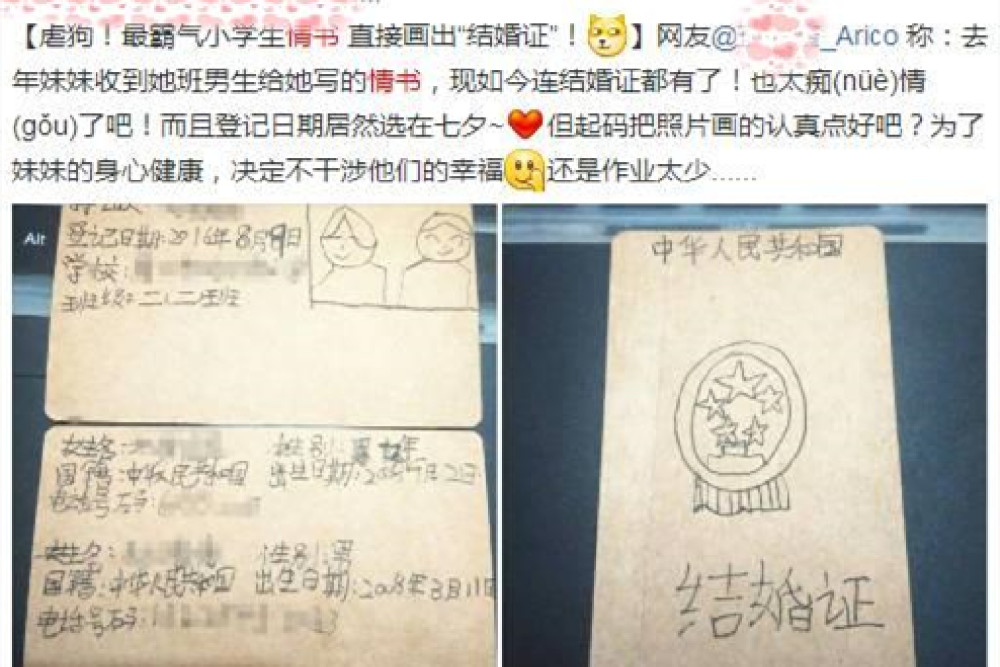 【虐狗！最霸气小学生情书 直接画出“结婚证”！】网友@ _Arico 称：去
年妹妹收到她班男生给她写的情书，现如今连结婚证都有了！也太痴(nüè)情
(gǒu)了吧！而且登记日期居然选在七夕~但起码把照片画的认真点好吧？为了
妹妹的身心健康，决定不干涉他们的幸福还是作业太少......
Alt
登记日期:2016年8月9日
学校:
班级:二(二)班
性别:
国籍:中华人民共和国 出生日期:
电话号码:
性别:男
国籍:中华人民共和国 出生日期:2008年3月11日
电话号码:
中华人民共和国
结婚证